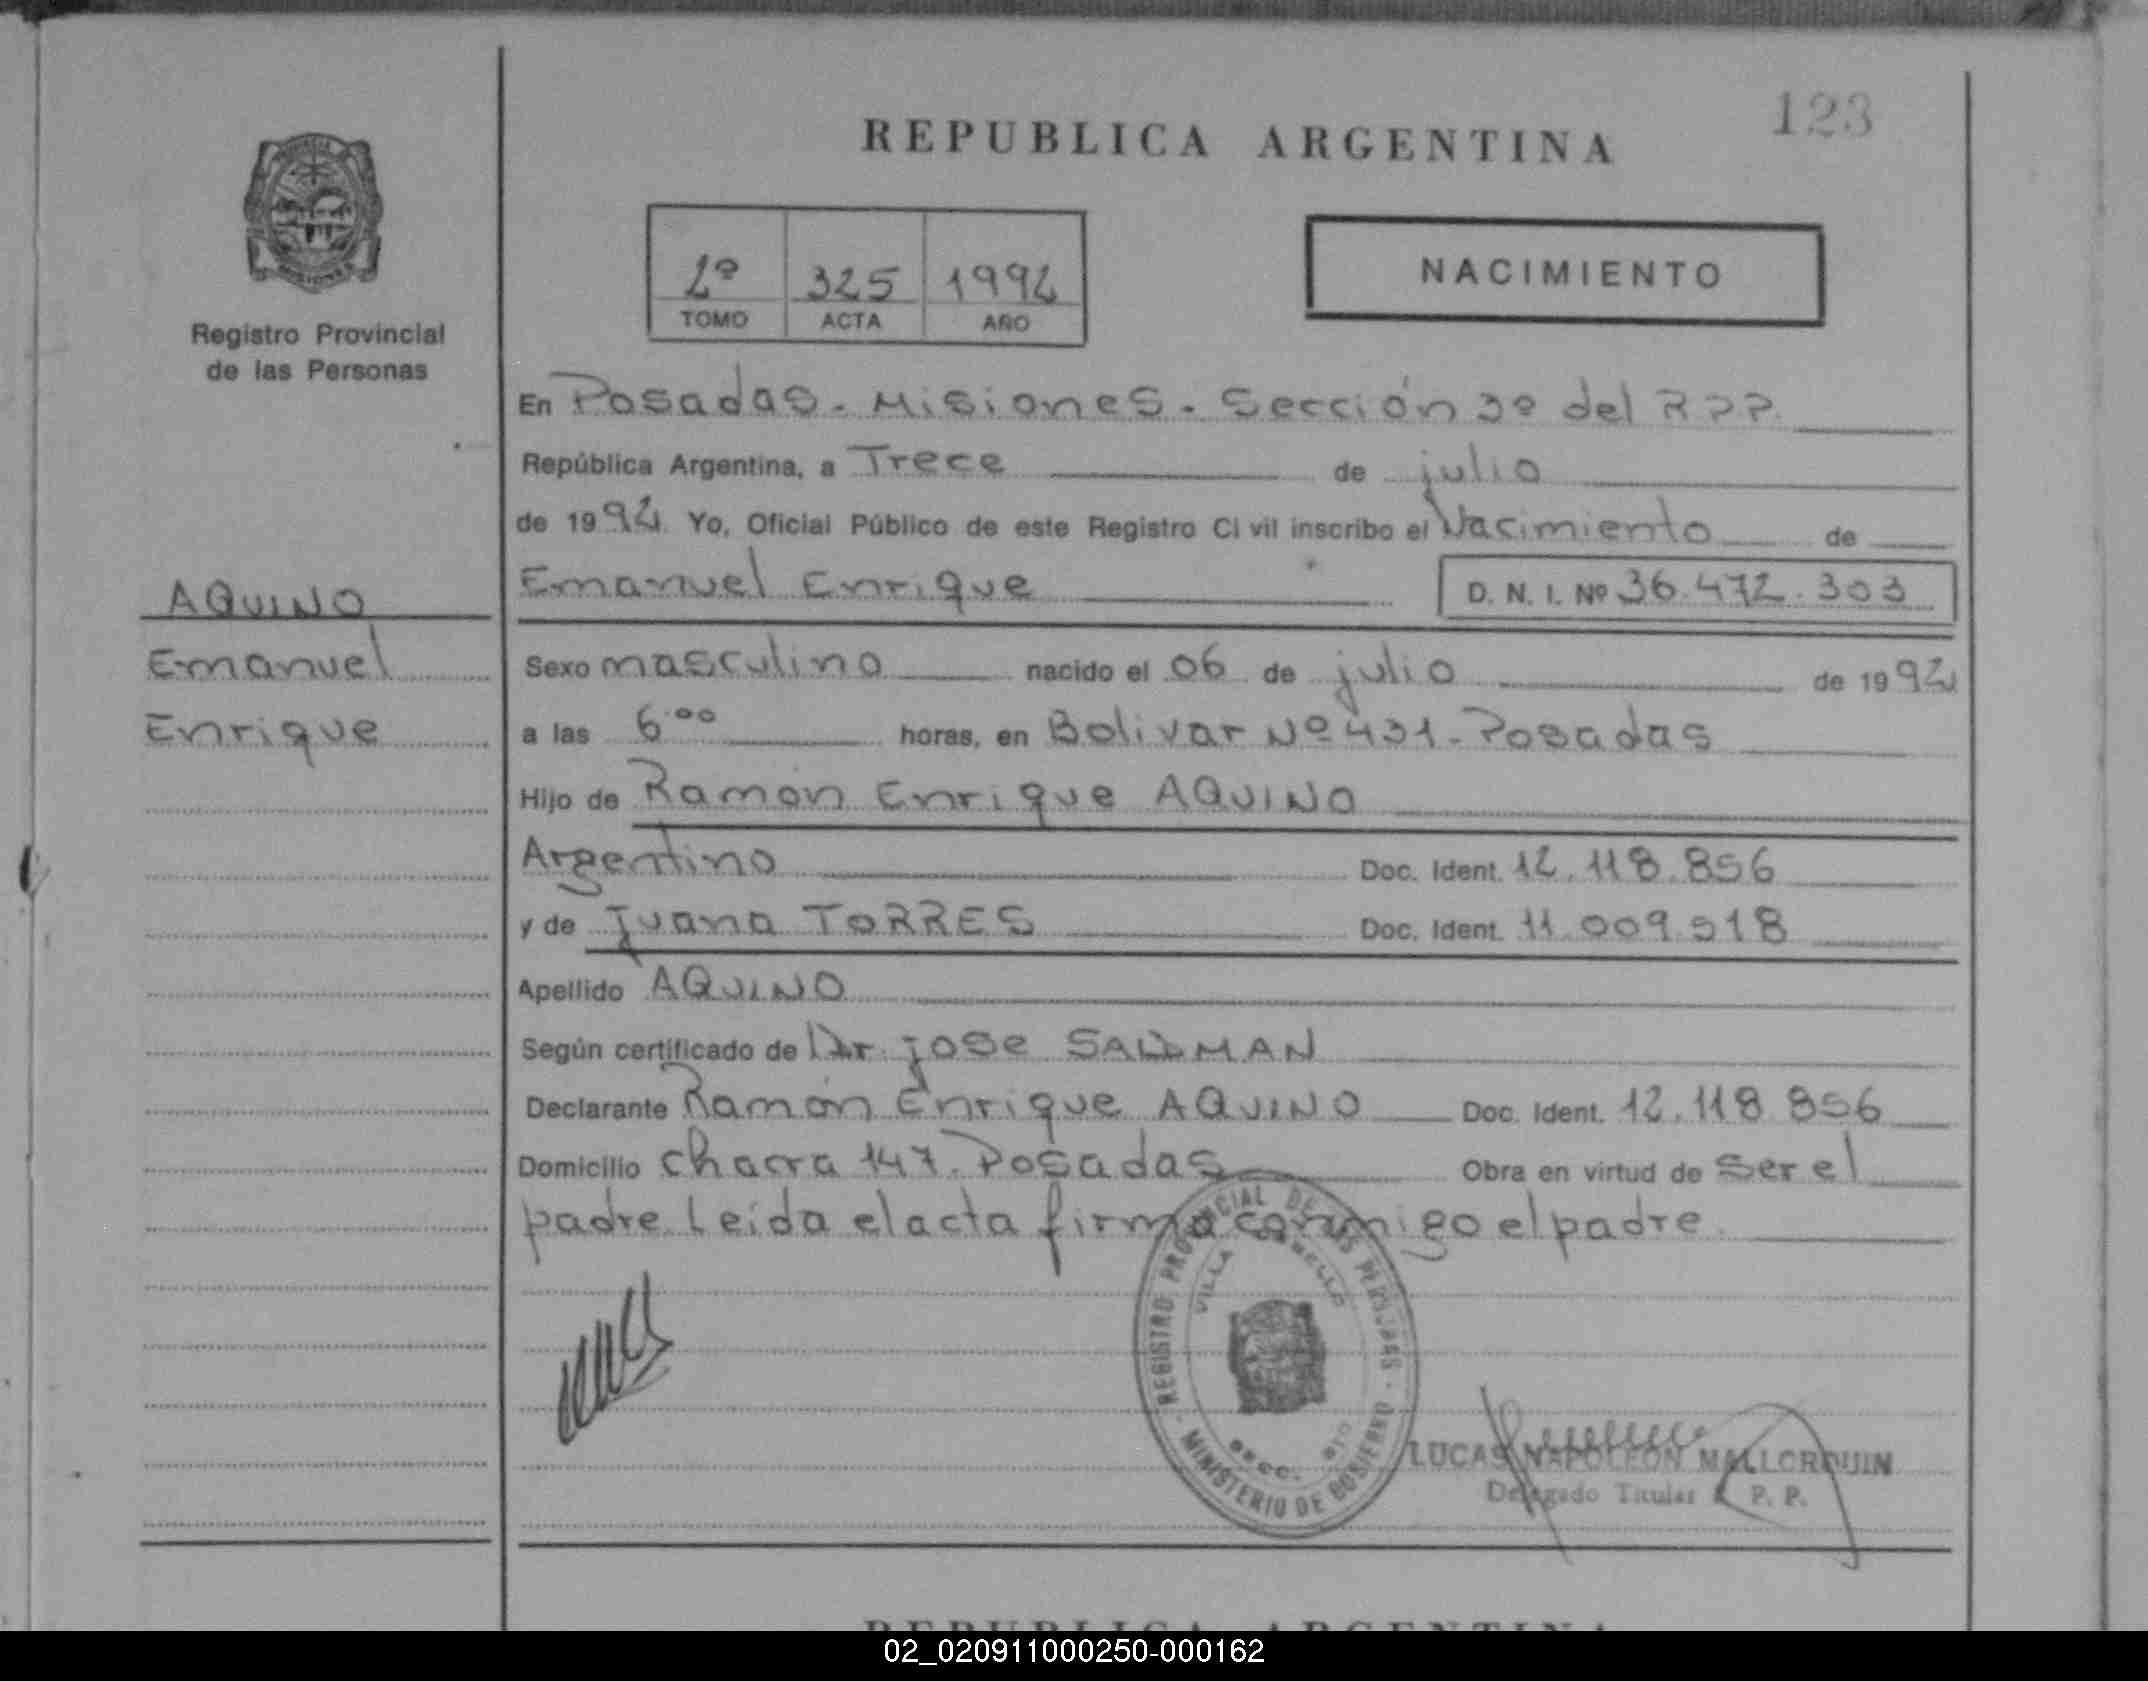 REPUBLICA ARGENTINA
123
PROVINCIA
MISIONES
Registro Provincial
de las Personas
2º 325 1992
TOMO ACTA AÑO
NACIMIENTO
En Posadas - Misiones - Sección 3º del RPP.
República Argentina, a Trece de julio
de 1992 Yo, Oficial Público de este Registro Civil inscribo el Nacimiento de
Emanuel Enrique D. N. I. Nº 36.472.303
AQUINO
Emanuel
Enrique
Sexo masculino nacido el 06 de julio de 1992
a las 6.00 horas, en Bolivar Nº 431 - Posadas
Hijo de Ramón Enrique AQUINO
Argentino Doc. Ident. 12.118.856
y de Juana TORRES Doc. Ident. 11.009.518
Apellido AQUINO
Según certificado de Dr. Jose
Declarante Ramón Enrique AQUINO Doc. Ident. 12.118.856
Domicilio Chacra 147. Posadas Obra en virtud de ser el
padre. Leida el acta firma conmigo el padre.
REGISTRO PROVINCIAL DE LAS PERSONAS - MINISTERIO DE GOBIERNO -
VILLA
LUCAS NAPOLEON MALLORQUIN
Delegado Titular R. P. P.
REPUBLICA ARGENTINA
02_020911000250-000162